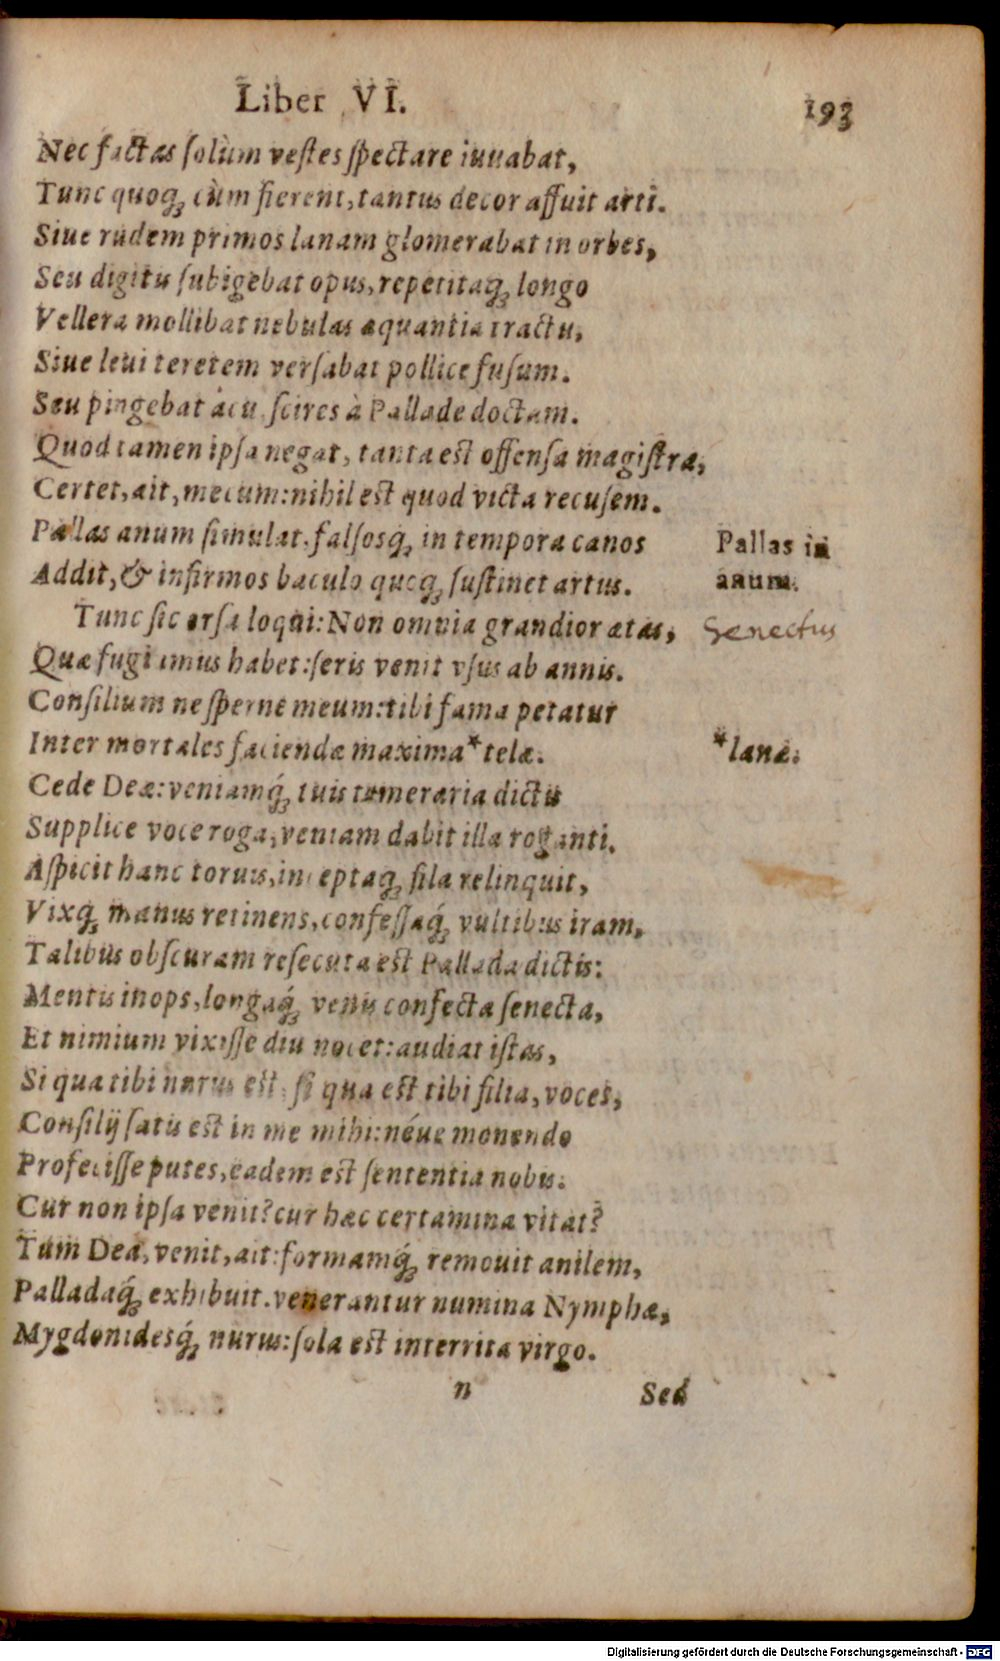 Liber VI. 193
Nec factas ſolùm veſtes ſpectare iuuabat,
Tunc quoq; cùm fierent, tantus decor affuit arti.
Siue rudem primos lanam glomerabat in orbes,
Seu digitis ſubigebat opus, repetitaq; longo
Vellera mollibat nebulas æquantia tractu,
Siue leui teretem verſabat pollice fuſum.
Seu pingebat acu ſcires à Pallade doctam.
Quod tamen ipſa negat, tanta est offenſa magiſtra,
Certet, ait, mecum: nihil est quod victa recuſem.
Pallas anum ſimulat, falſosq́; in tempora canos
Pallas in
Addit, & infirmos baculo quoq; ſuſtinet artus.
anum.
Tunc ſic orſa loqui: Non omnia grandior ætas,
Senectus
Quæ fugi amus habet: ſeris venit vſus ab annis.
Conſilium ne ſperne meum: tibi fama petatur
Inter mortales faciendæ maxima * telæ.
* lanæ.
Cede Deæ: veniamq́; tuis temeraria dictis
Supplice voce roga, veniam dabit illa roganti.
Aſpicit hanc toruis, inceptaq; fila relinquit,
Vixq; manus retinens, confeſſaq́; vultibus iram,
Talibus obſcuram reſecuta est Pallada dictis:
Mentis inops, longaq́; venis confecta ſenecta,
Et nimium vixiſſe diu nocet: audiat iſtas,
Si qua tibi nurus est, ſi qua est tibi filia, voces,
Conſilij ſatis est in me mihi: néue monendo
Profeciſſe putes, eadem est ſententia nobis.
Cur non ipſa venit? cur hæc certamina vitat?
Tum Dea, venit, ait: formamq́; remouit anilem,
Palladaq́; exhibuit. venerantur numina Nymphæ,
Mygdonidesq́; nurus: ſola est interrita virgo.
n Sed
Digitalisierung gefördert durch die Deutsche Forschungsgemeinschaft - DFG